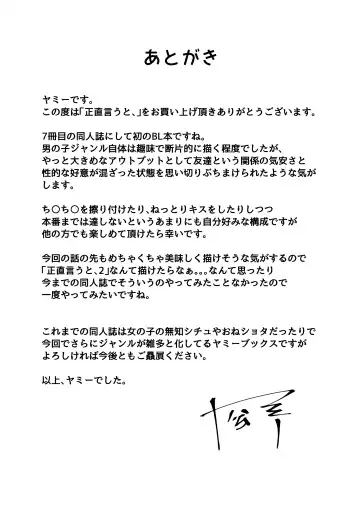 あとがき
ヤミーです。
この度は「正直言うと、」をお買い上げ頂きありがとうございます。
7冊目の同人誌にして初のBL本ですね。
男の子ジャンル自体は趣味で断片的に描く程度でしたが、
やっと大きめなアウトプットとして友達という関係の気安さと
性的な好意が混ざった状態を思い切りぶちまけられたような気が
します。
ち○ち○を擦り付けたり、ねっとりキスをしたりしつつ
本番までは達しないというあまりにも自分好みな構成ですが
他の方でも楽しめて頂けたら幸いです。
今回の話の先もめちゃくちゃ美味しく描けそうな気がするので
「正直言うと、2」なんて描けたらなぁ。。。なんて思ったり
今までの同人誌でそういうのやってみたことなかったので
一度やってみたいですね。
これまでの同人誌は女の子の無知シチュやおねショタだったりで
今回でさらにジャンルが雑多と化してるヤミーブックスですが
よろしければ今後ともご贔屓ください。
以上、ヤミーでした。